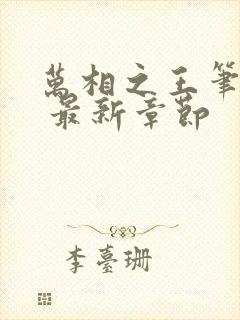 萬相之王筆
最新章節
李臺珊